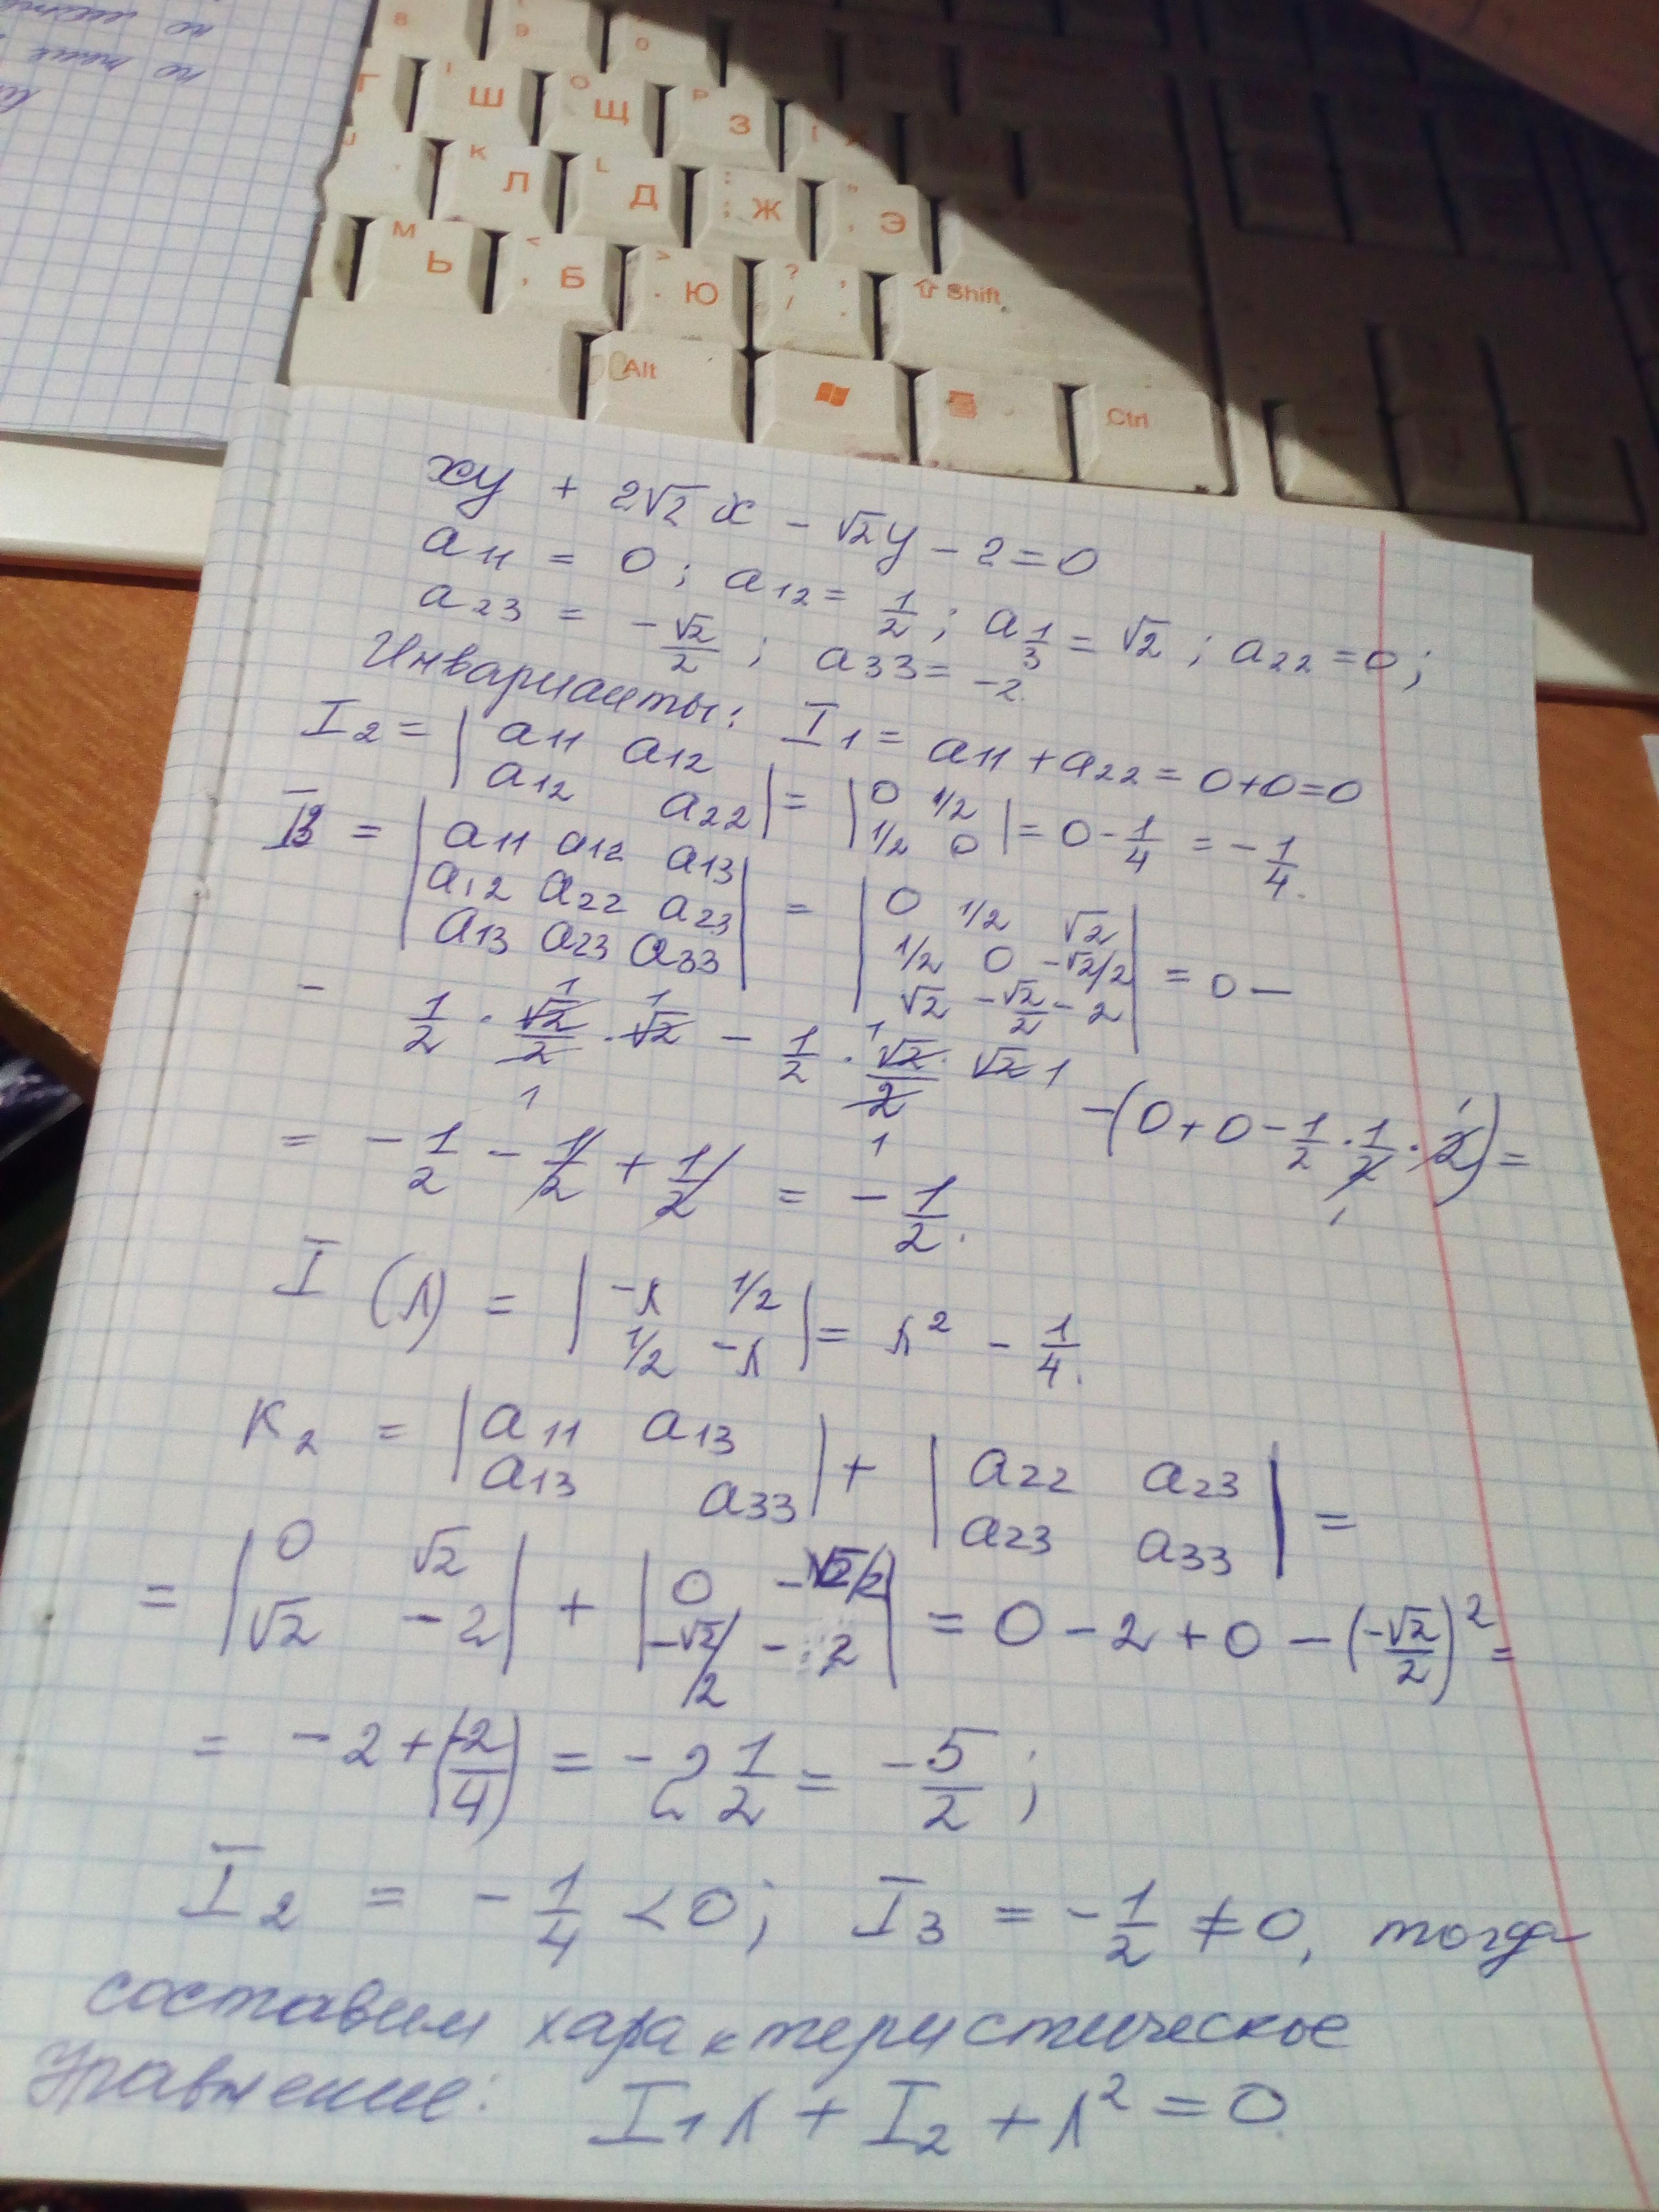 8 9 0
Г Ш O Щ P З [ Х
J K Л L Д : ; Ж " Э
М Ь < , Б > . Ю ? / , . ⇧ Shift
Alt Ctrl
xy + 2√2 x - √2 y - 2 = 0
a11 = 0; a12 = 1/2; a13 = √2; a22 = 0;
a23 = -√2/2; a33 = -2.
Инварианты: I1 = a11 + a22 = 0+0=0
I2 = | a11 a12 ; a12 a22 | = | 0 1/2 ; 1/2 0 | = 0 - 1/4 = -1/4.
I3 = | a11 a12 a13 ; a12 a22 a23 ; a13 a23 a33 | = | 0 1/2 √2 ; 1/2 0 -√2/2 ; √2 -√2/2 -2 | = 0 -
- 1/2 · √2/2 · √2 - 1/2 · √2/2 · √2 - (0 + 0 - 1/2 · 1/2 · 2) =
= -1/2 - 1/2 + 1/2 = -1/2.
I (λ) = | -λ 1/2 ; 1/2 -λ | = λ² - 1/4.
K2 = | a11 a13 ; a13 a33 | + | a22 a23 ; a23 a33 | =
= | 0 √2 ; √2 -2 | + | 0 -√2/2 ; -√2/2 -2 | = 0 - 2 + 0 - (-√2/2)² =
= -2 + (-2/4) = -2 1/2 = -5/2;
I2 = -1/4 < 0; I3 = -1/2 ≠ 0, тогда
составим характеристическое
Уравнение: I1 λ + I2 + λ² = 0.